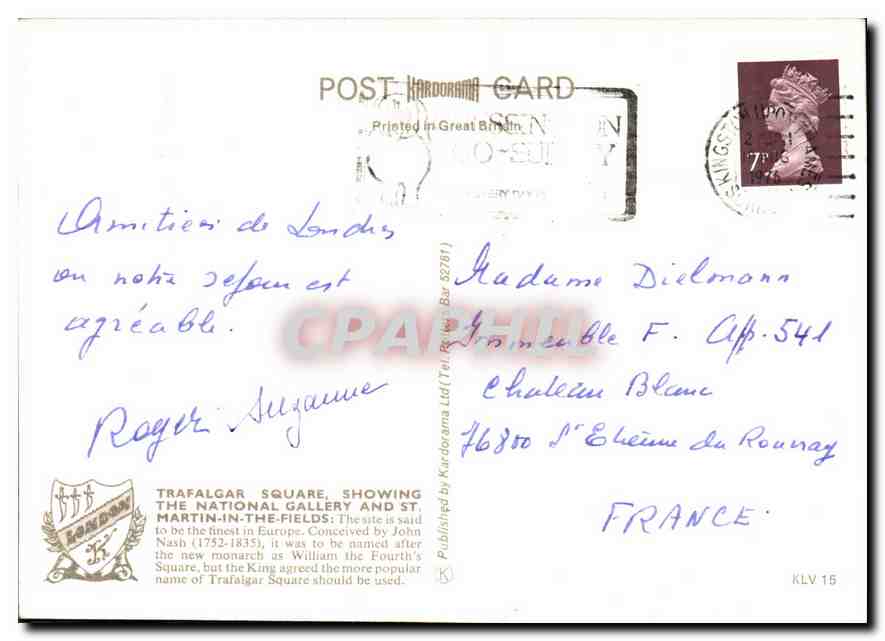 POST KARDORAMA CARD
Printed in Great Britain
7P
1976
Amitiés de Londres
ou notre séjour est
agréable.
Roger Suzanne
Madame Dielmann
Immeuble F. App. 541
Chateau Blanc
76800 St Etienne du Rouvray
FRANCE.
CPAPHIL
Published by Kardorama Ltd (Tel. Potters Bar 52781)
LONDON
TRAFALGAR SQUARE, SHOWING
THE NATIONAL GALLERY AND ST.
MARTIN-IN-THE-FIELDS: The site is said
to be the finest in Europe. Conceived by John
Nash (1752-1835), it was to be named after
the new monarch as William the Fourth's
Square, but the King agreed the more popular
name of Trafalgar Square should be used.
K
KLV 15